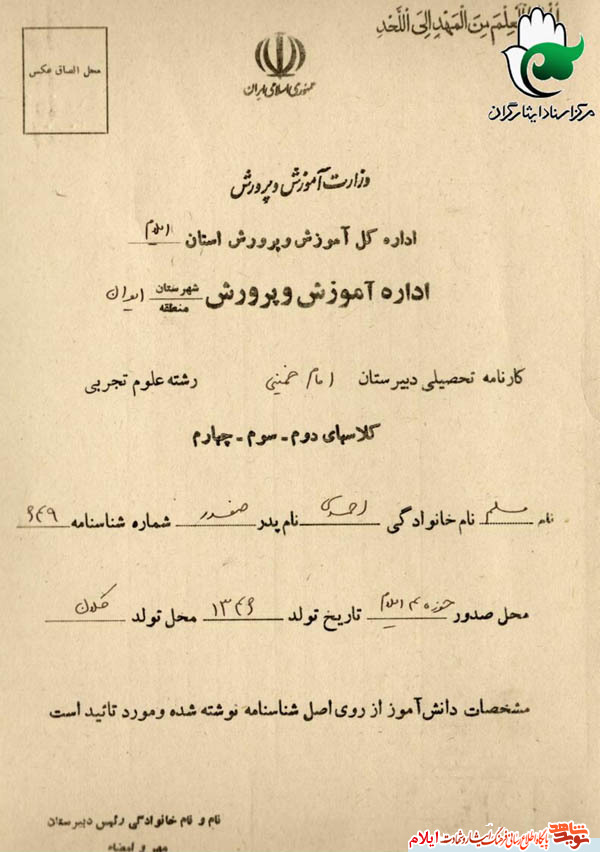 اُطْلُبُ الْعِلْمَ مِنَ الْمَهْدِ اِلَى اللَّحَدِ
محل الصاق عکس
جمهوری اسلامی ایران
مرکز اسناد ایثارگران
وزارت آموزش و پرورش
اداره کل آموزش و پرورش استان ایلام
اداره آموزش و پرورش شهرستان منطقه ایوان
کارنامه تحصیلی دبیرستان امام خمینی رشته علوم تجربی
کلاسهای دوم - سوم - چهارم
نام مسلم نام خانوادگی احمدی نام پدر صفدر شماره شناسنامه ۶۴۹
محل صدور حوزه ۳ ایلام تاریخ تولد ۱۳۴۶ محل تولد کلان
مشخصات دانش‌آموز از روی اصل شناسنامه نوشته شده و مورد تائید است
نام و نام خانوادگی رئیس دبیرستان
مهر و امضاء
نوید شاهد پایگاه اطلاع رسانی فرهنگ ایثار و شهادت ایلام